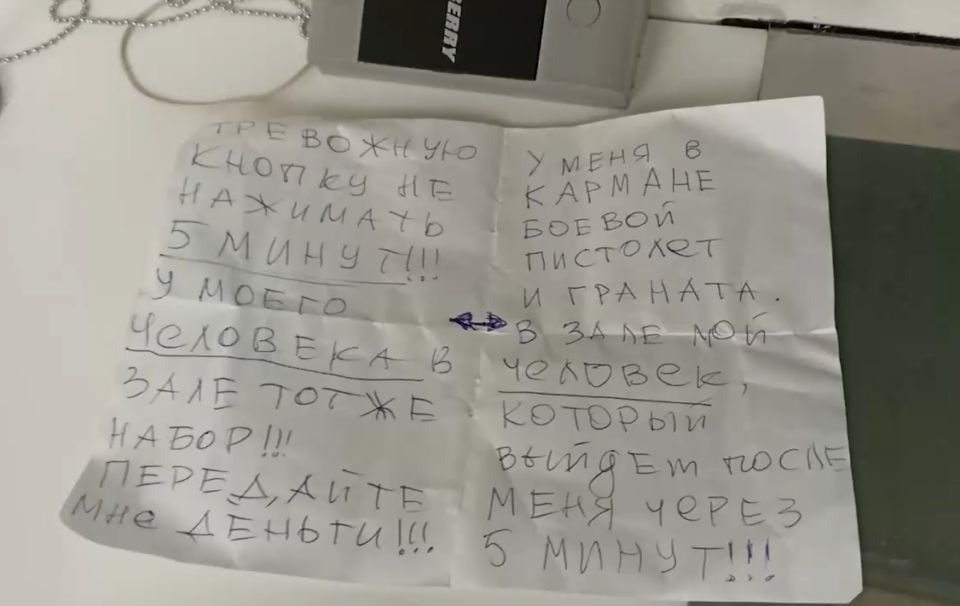 BERRY
ТРЕВОЖНУЮ
КНОПКУ НЕ
НАЖИМАТЬ
5 МИНУТ!!!
У МОЕГО
ЧЕЛОВЕКА В
ЗАЛЕ ТОТЖЕ
НАБОР!!!
ПЕРЕДАЙТЕ
МНе ДЕНЬГИ!!!
У МЕНЯ В
КАРМАНЕ
БОЕВОЙ
ПИСТОЛЕТ
И ГРАНАТА.
В ЗАЛЕ МОЙ
ЧЕЛОВЕК,
КОТОРЫЙ
ВЫЙДЕТ ПОСЛЕ
МЕНЯ ЧЕРЕЗ
5 МИНУТ!!!